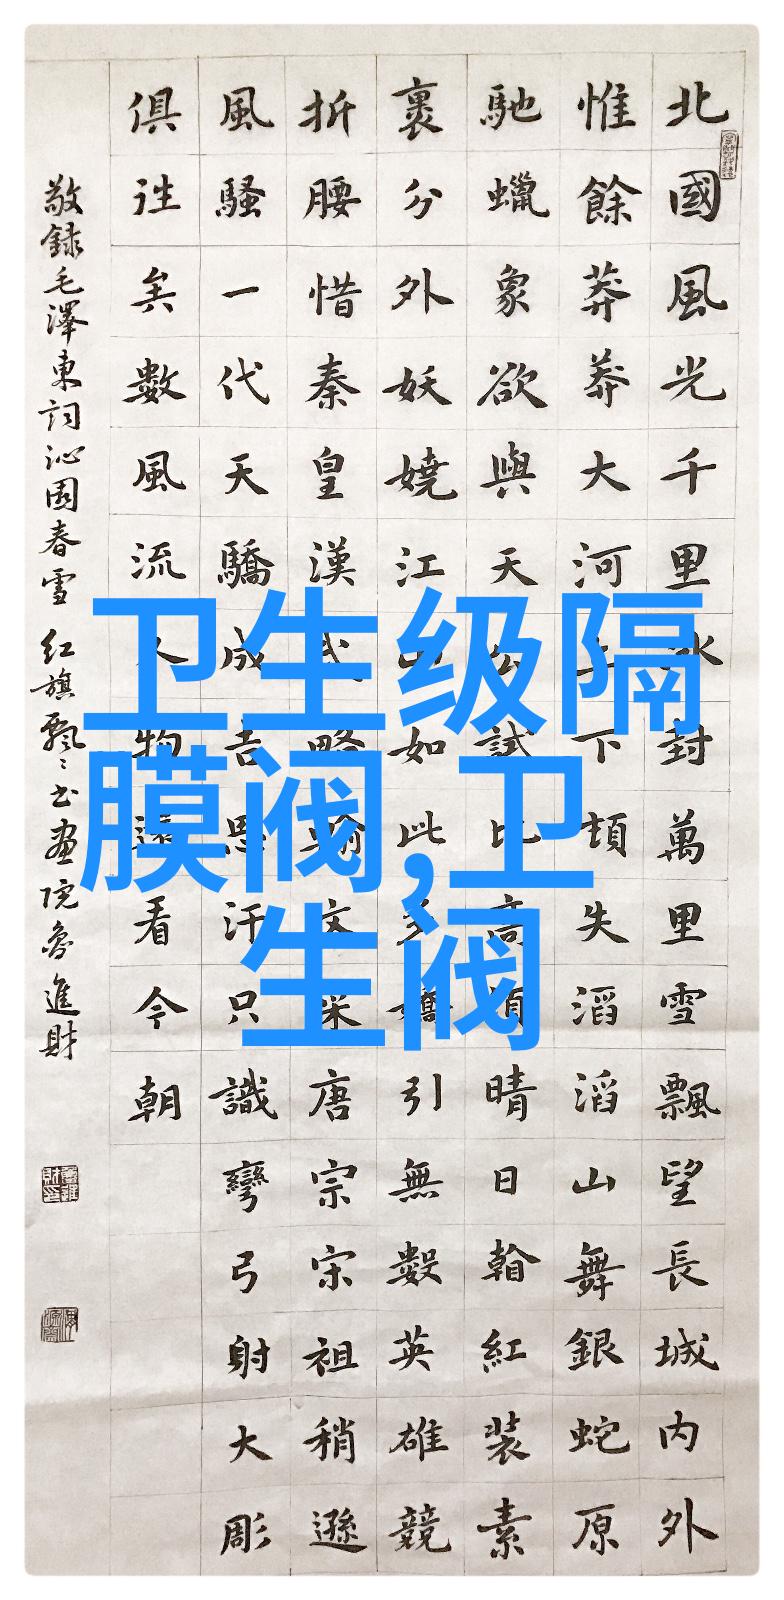 北國風光千里冰封萬里雪飄望長城内外
惟餘莽莽大河上下頓失滔滔山舞銀蛇原
馳蠟象欲與天公試比高須晴日看紅裝素
裹分外妖嬈江山如此多嬌引無數英雄競
折腰惜秦皇漢武略輸文采唐宗宋祖稍遜
風騷一代天驕成吉思汗只識彎弓射大彫
俱往矣數風流人物還看今朝
敬録毛澤東詞沁園春雪 红旗飄々书畫院魯進財
卫生级隔
膜阀,卫
生阀